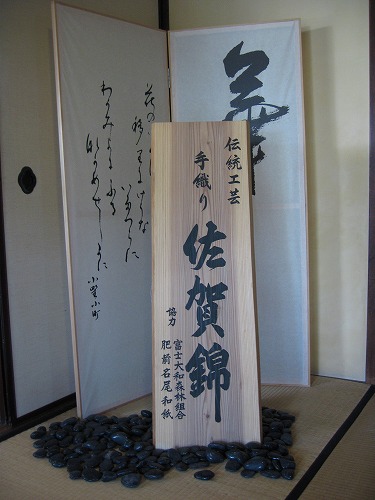 伝統工芸
手織り
佐賀錦
協力
富士大和森林組合
肥前名尾和紙
花の
移りにけりな
いたづらに
わがみよにふる
ながめせしまに
小野小町